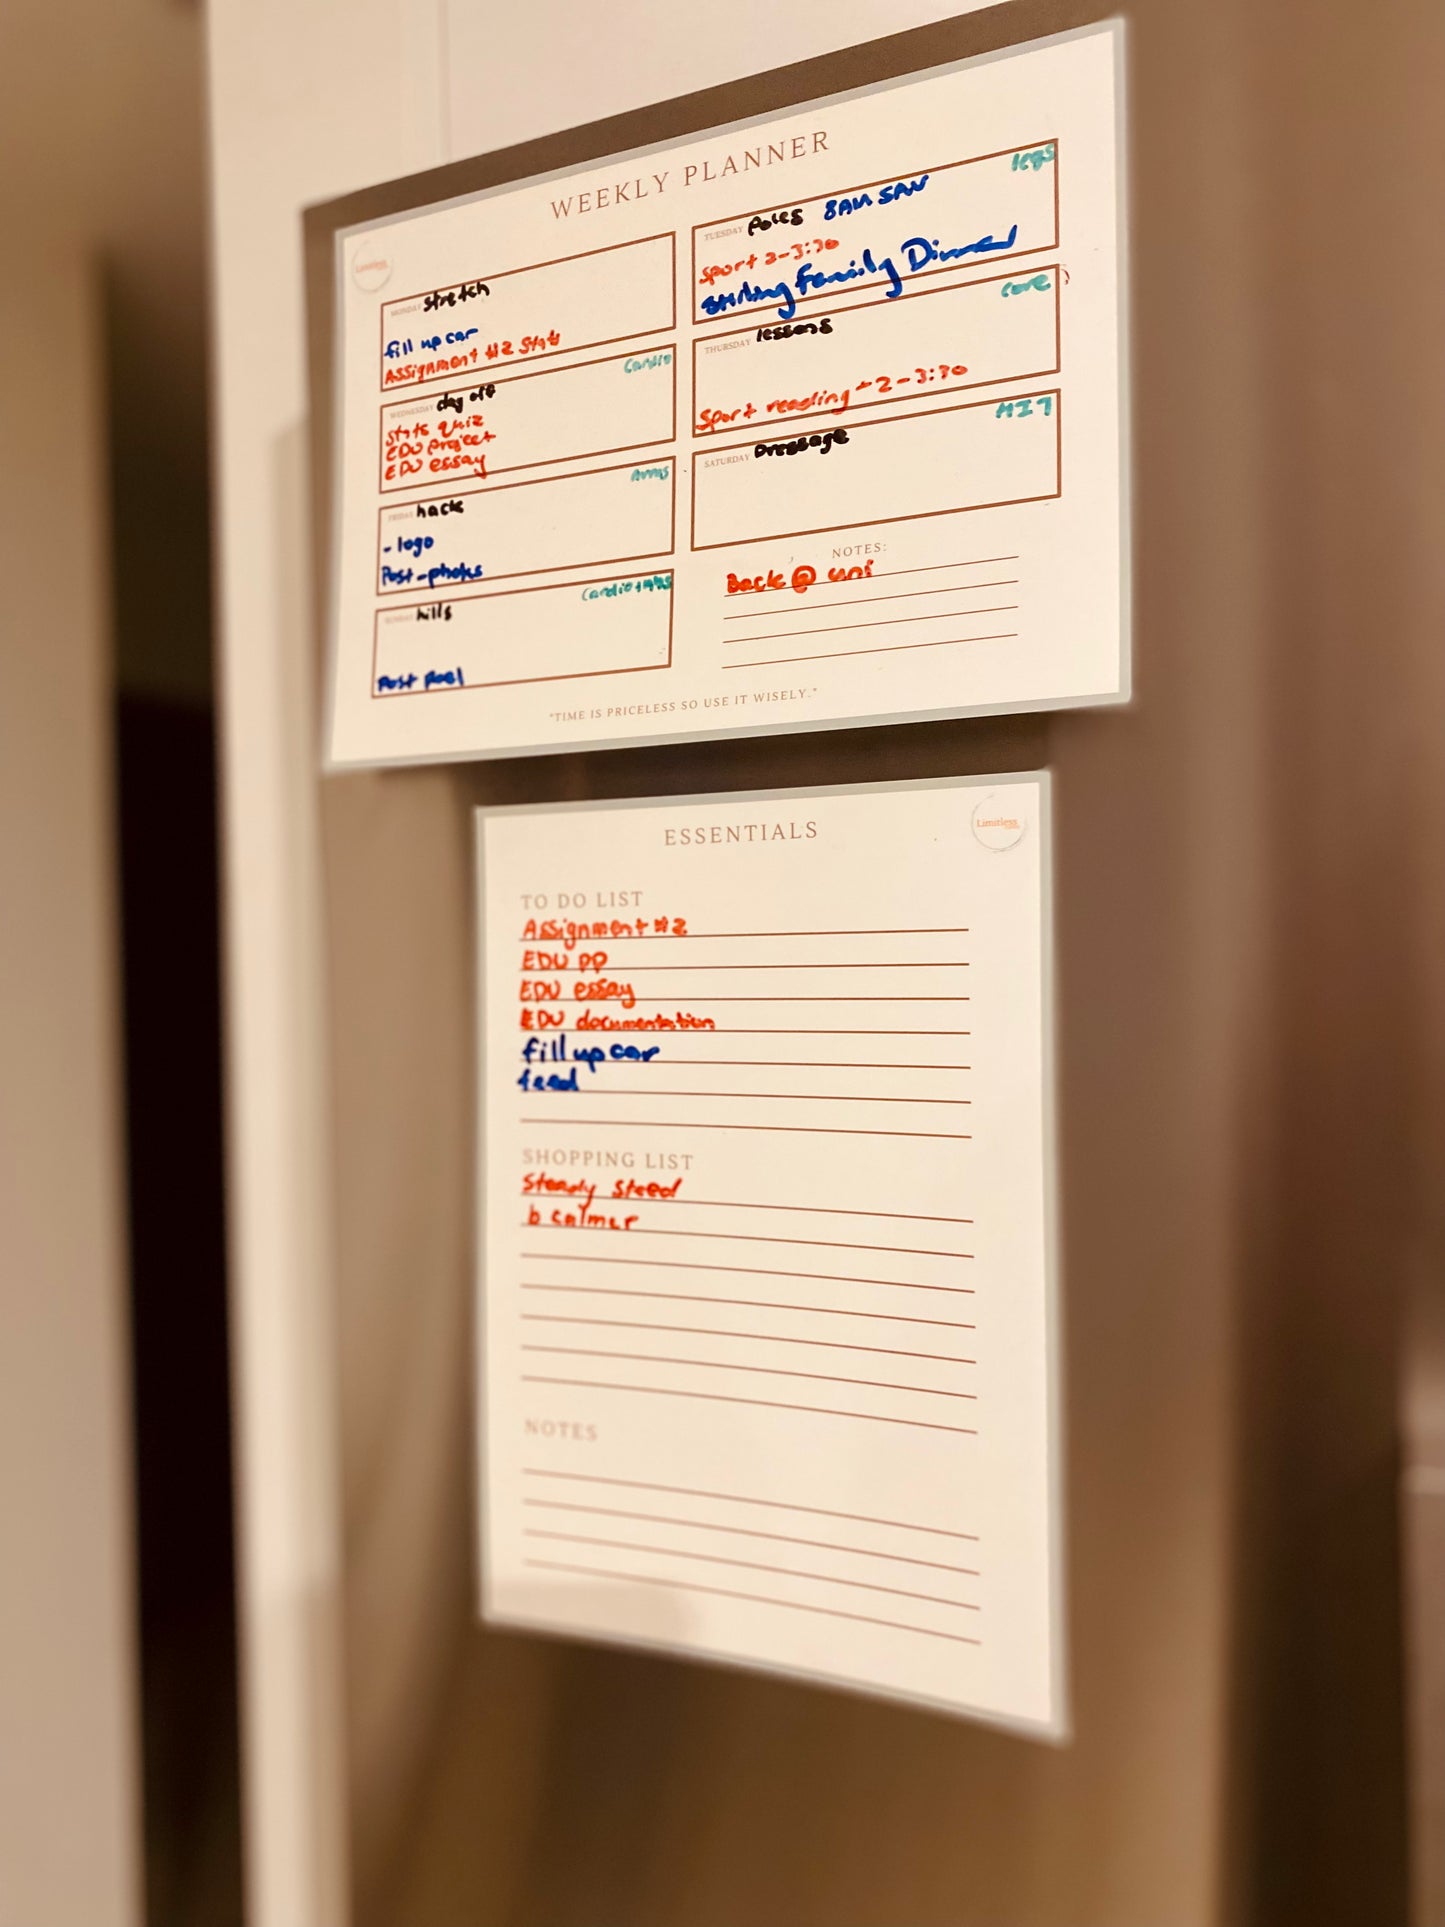 WEEKLY PLANNER
Limitless
MONDAY stretch
fill up car
Assignment #2 Stats
TUESDAY Poles 8AM SAN
legs
Sport 2-3:30
Stirling Family Dinner
WEDNESDAY day off
Cardio
Stats quiz
EDU Project
EDU essay
THURSDAY lessons
core
Sport reading - 2-3:30
FRIDAY hack
Arms
- logo
Post - photos
SATURDAY Dressage
HIT
SUNDAY hills
Cardio +
Post
NOTES:
Back @ uni
"TIME IS PRICELESS SO USE IT WISELY."
ESSENTIALS
Limitless
TO DO LIST
Assignment #2
EDU PP
EDU essay
EDU documentation
fill up car
feed
SHOPPING LIST
Steady Steed
b calmer
NOTES